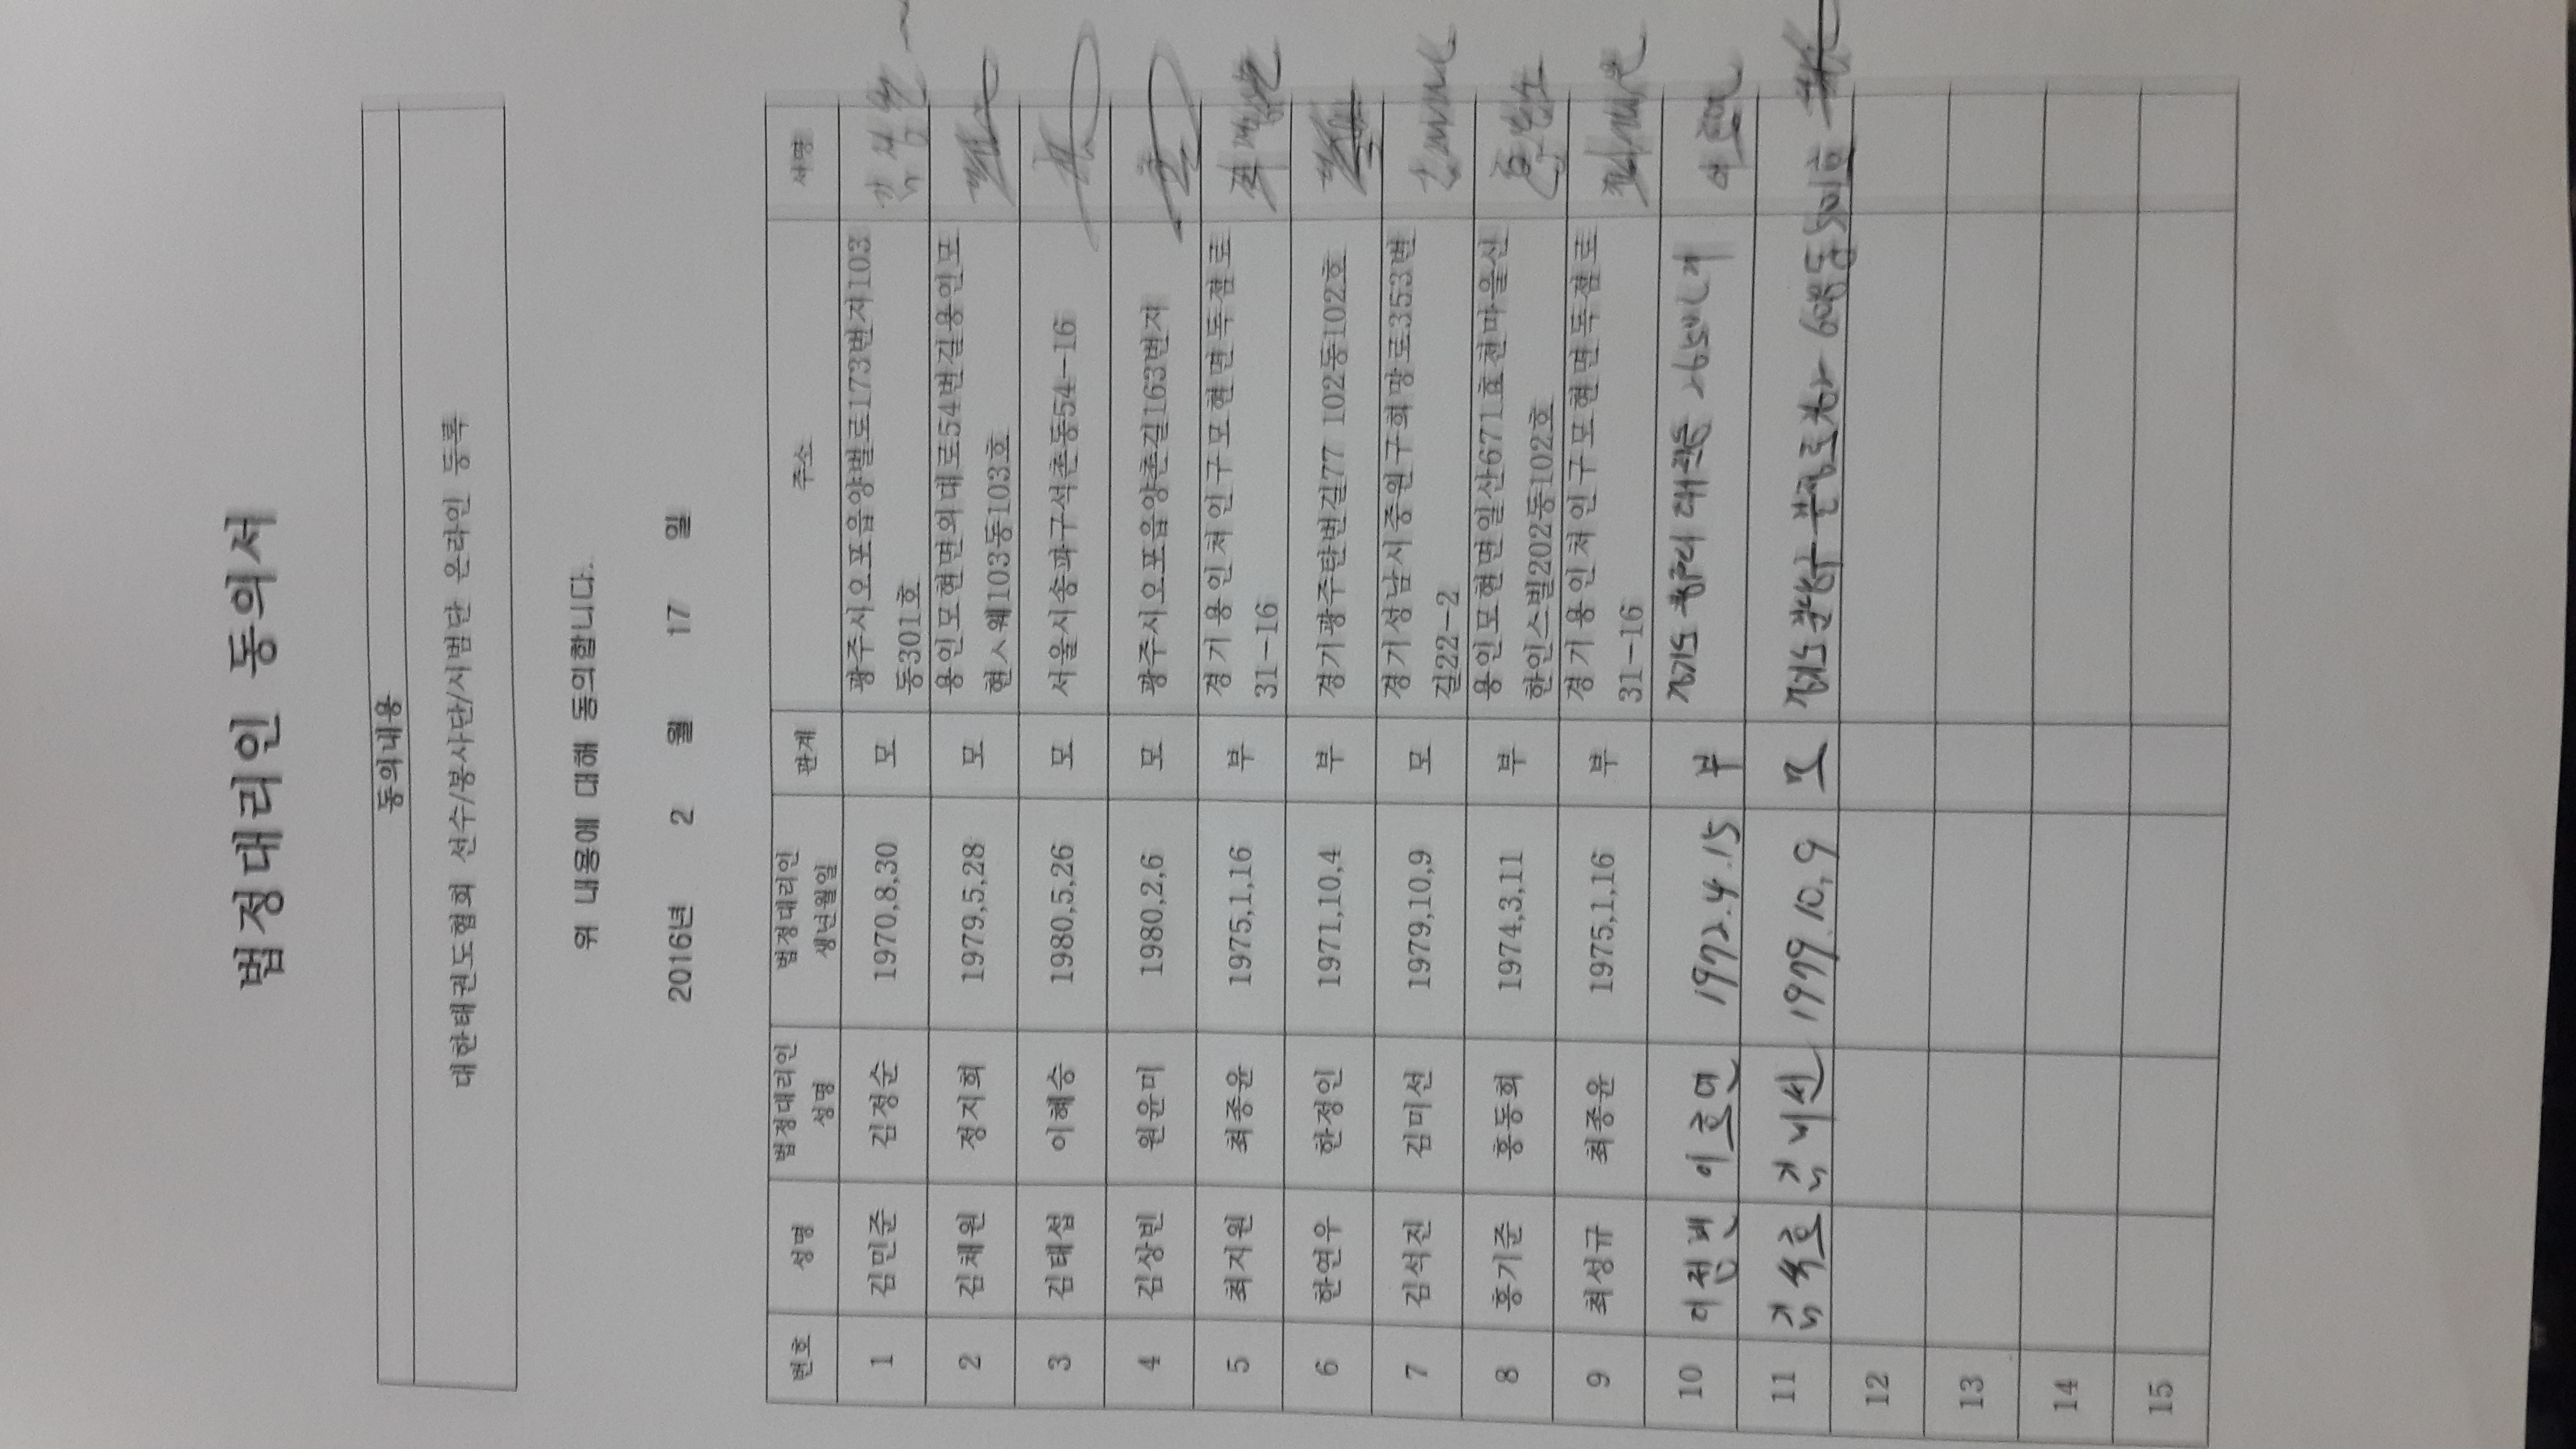 법정대리인 동의서
동의내용
대한태권도협회 선수/봉사단/시범단 온라인 등록
위 내용에 대해 동의합니다.
2016년 2 월 17 일
번호 성명 법정대리인 성명 법정대리인 생년월일 관계 주소 서명
1 김민준 김정순 1970,8,30 모 광주시오포읍양벌로173번지103
동301호
2 김채원 정지희 1979,5,28 모 용인모현면외대로54번길용인모
현스웰103동103호
3 김태섭 이혜승 1980,5,26 모 서울시송파구석촌동54-16
4 김상빈 원윤미 1980,2,6 모 광주시오포읍양촌길163번지
5 최지원 최종윤 1975,1,16 부 경기용인처인구모현면독점로
31-16
6 한연우 한정인 1971,10,4 부 경기광주탄벌길77 102동102호
7 김석진 김미선 1979,10,9 모 경기성남시중원구희망로353번
길22-2
8 홍기준 홍동희 1974,3,11 부 용인모현면일산671효천마을신
한인스빌202동102호
9 최성규 최종윤 1975,1,16 부 경기용인처인구모현면독점로
31-16
10 이호연 1972.4.15 부
11 김석호 김미선 1979.10.9 모
12
13
14
15